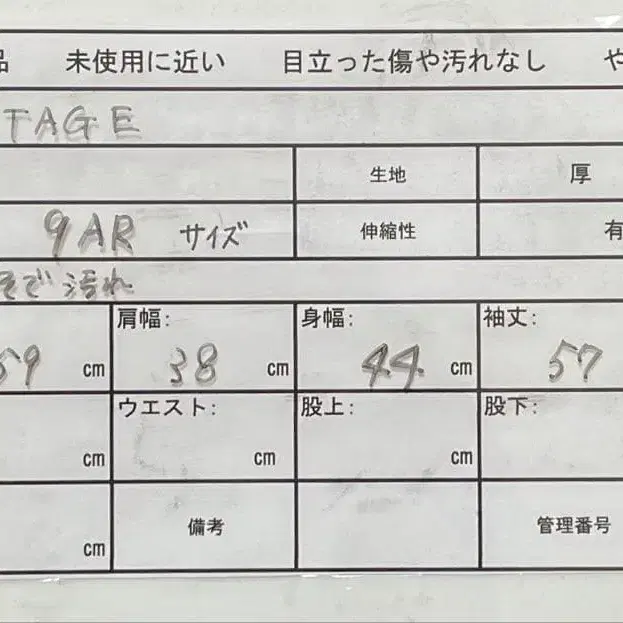 品 未使用に近い 目立った傷や汚れなし や
TAGE
生地 厚
9AR サイズ 伸縮性 有
そで汚れ
肩幅: 身幅: 袖丈:
59 cm 38 cm 44 cm 57
ウエスト: 股上: 股下:
cm cm cm
cm 備考 管理番号